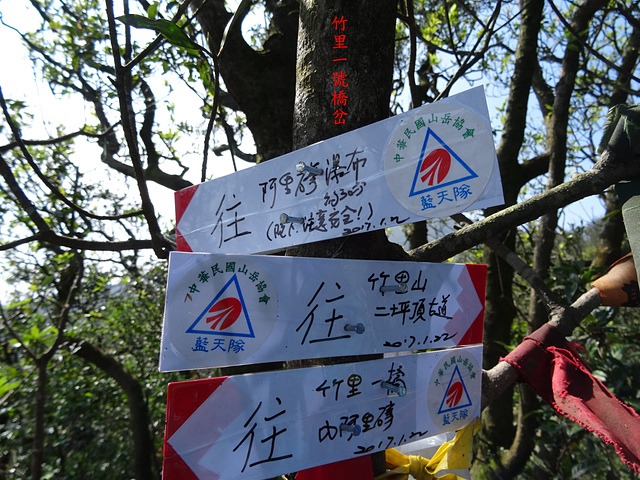 竹里一號橋岔
往 阿里磅瀑布
約30分
(陡下.注意安全!)
2017.1.22
中華民國山岳協會
藍天隊
中華民國山岳協會
藍天隊
往 竹里山
二坪頂古道
2017.1.22
往 竹里一橋
內阿里磅
2017.1.22
中華民國山岳協會
藍天隊